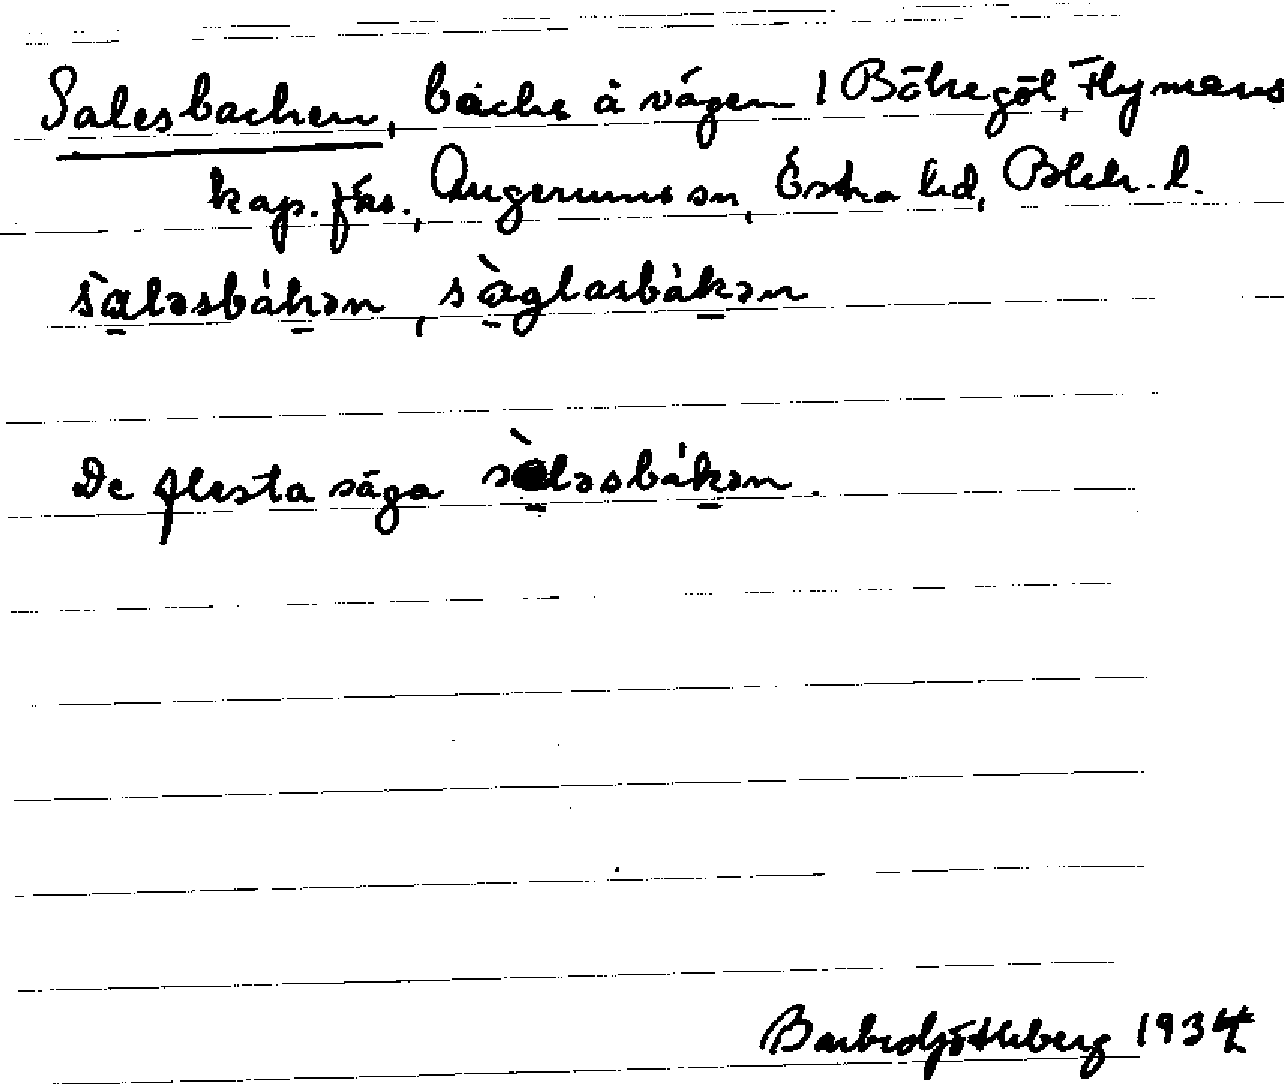 Salesbacken, backe å vägen i Bökegöl, Flymens
kap. förs., Augerums sn, Östra hd, Blek. l.
sàləsbákən, sàglasbákən
De flesta säga sàləsbákən.
1934